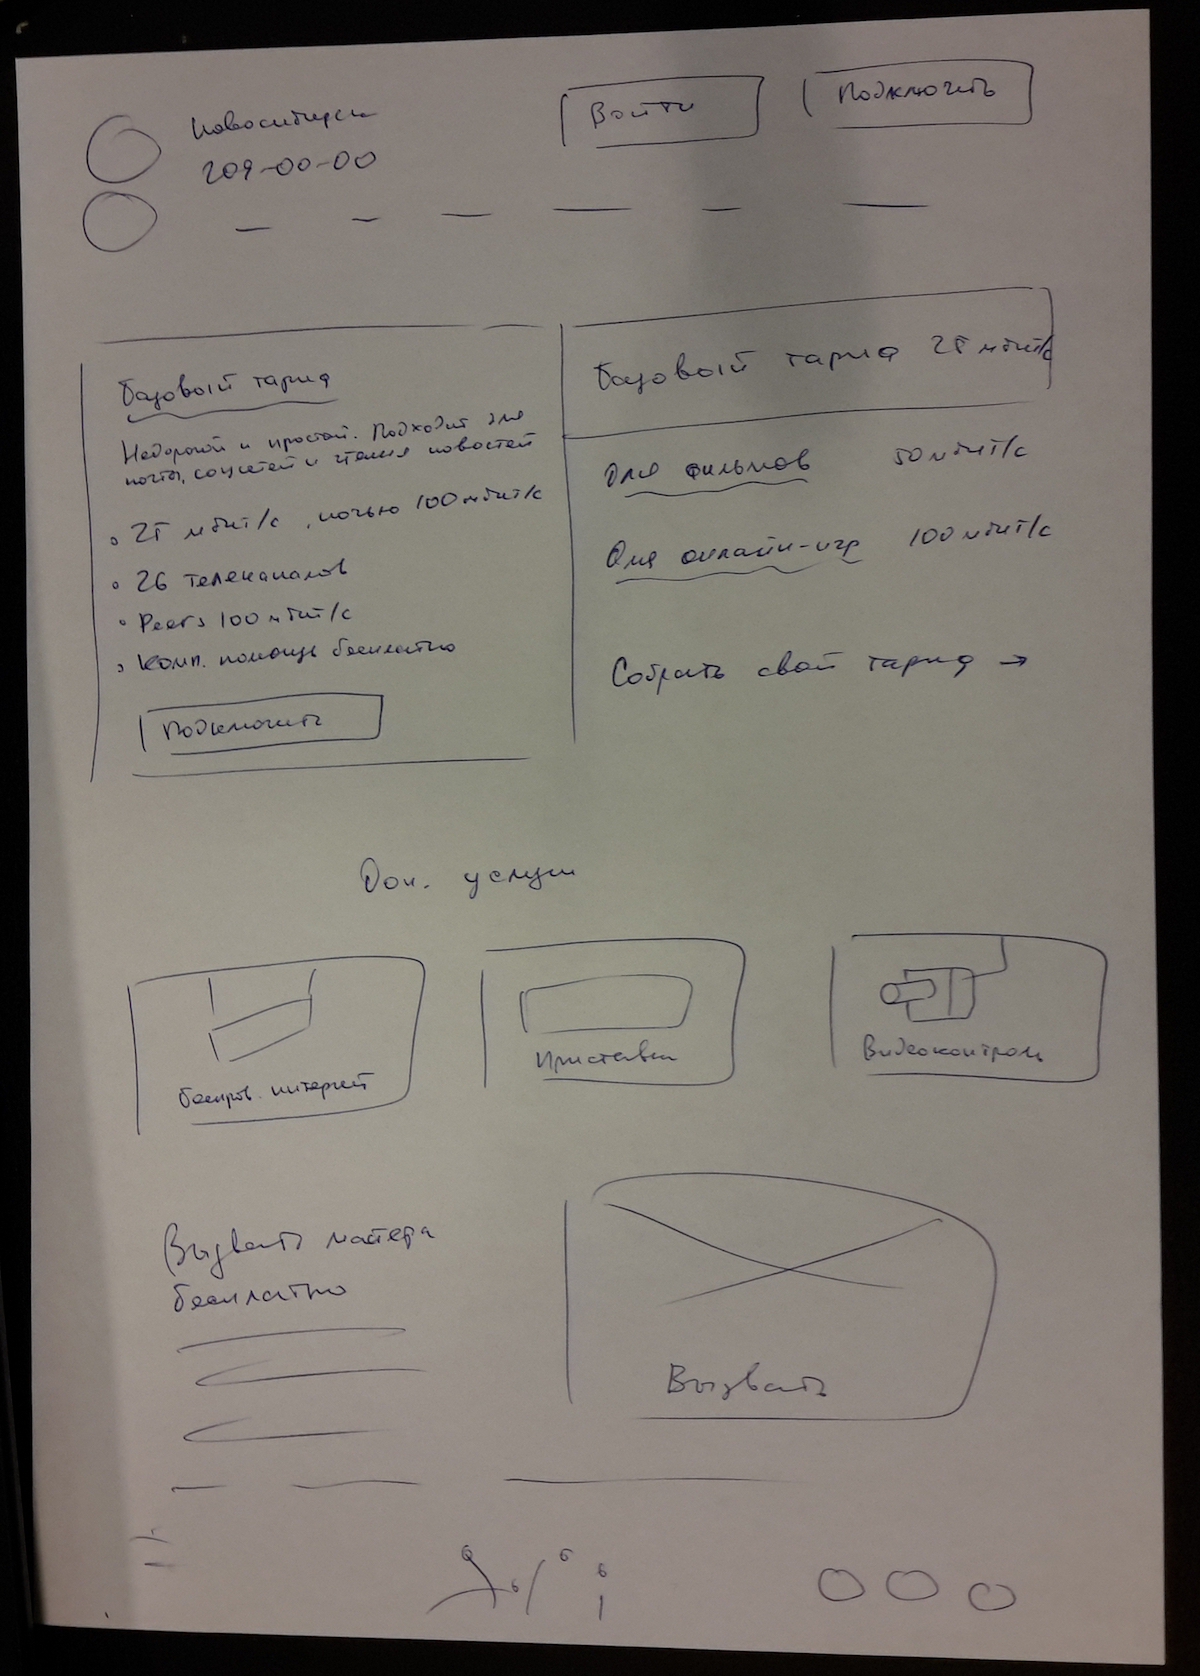 Новосибирск
Войти
Подключить
209-00-00
Базовый тариф
Недорогой и простой. Подходит для
почты, соцсетей и чтения новостей
25 мбит/с, ночью 100 мбит/с
26 телеканалов
Peers 100 мбит/с
Комп. помощь бесплатно
Подключить
Базовый тариф 25 мбит/с
Для фильмов 50 мбит/с
Для онлайн-игр 100 мбит/с
Собрать свой тариф →
Доп. услуги
Беспров. интернет
Приставки
Видеоконтроль
Вызвать мастера
бесплатно
Вызвать